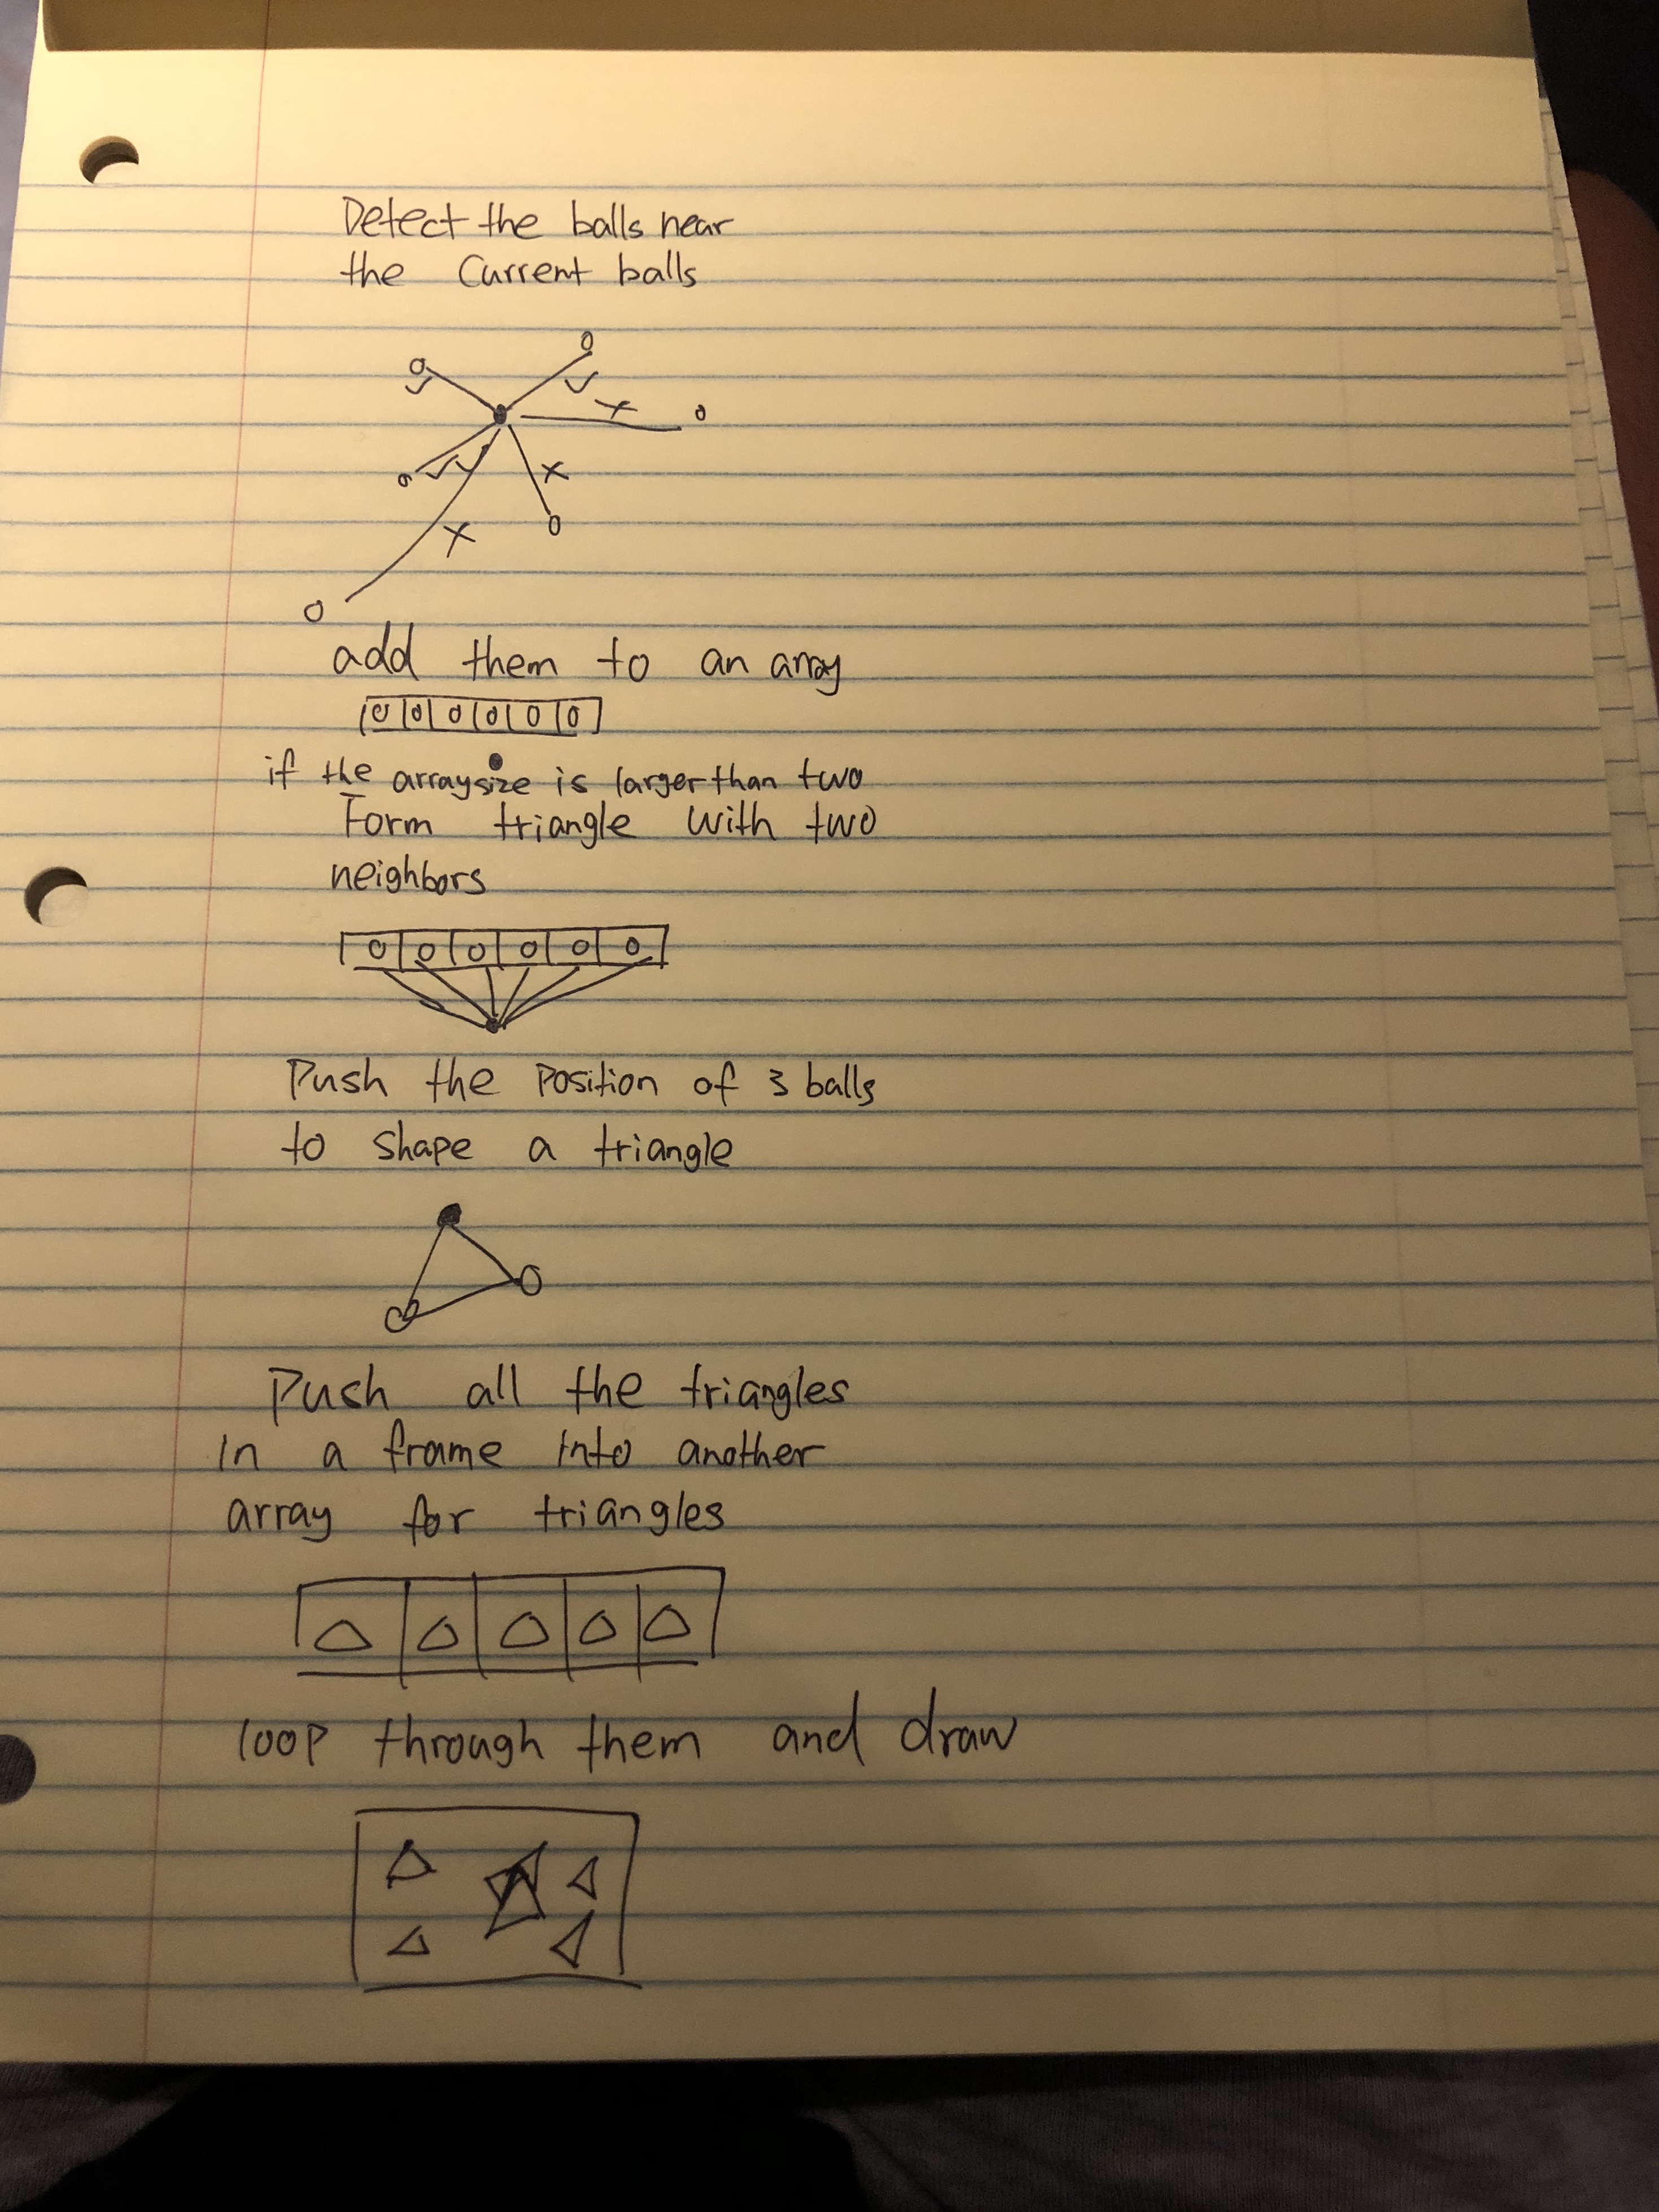 Detect the balls near
the Current balls
add them to an array
if the array size is larger than two
Form triangle with two
neighbors
Push the Position of 3 balls
to shape a triangle
Push all the triangles
in a frame into another
array for triangles
loop through them and draw